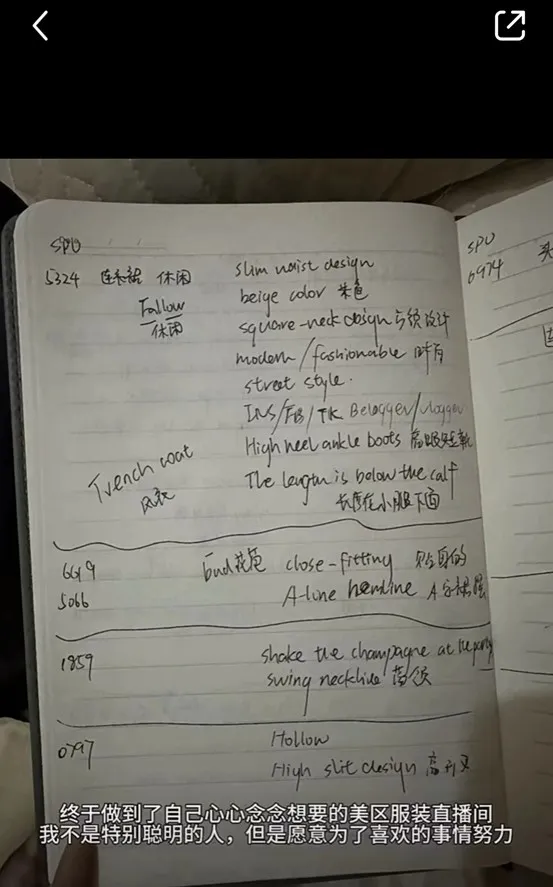 SPU
5324 连衣裙 休闲 slim waist design
Fallow
休闲
beige color 米色
square-neck design 方领设计
modern/fashionable 时尚
street style.
INS/FB/TK Belogger/vlogger
High heel ankle boots 高跟短靴
Trench coat
风衣
The length is below the calf
长度在小腿下面
6619 bud花苞 close-fitting 贴身的
5066 A-line hemline A字裙摆
1859 shake the champagne at the party
swing neckline 荡领
0797 Hollow
High slit design 高开叉
SPU
6974
终于做到了自己心心念念想要的美区服装直播间
我不是特别聪明的人，但是愿意为了喜欢的事情努力